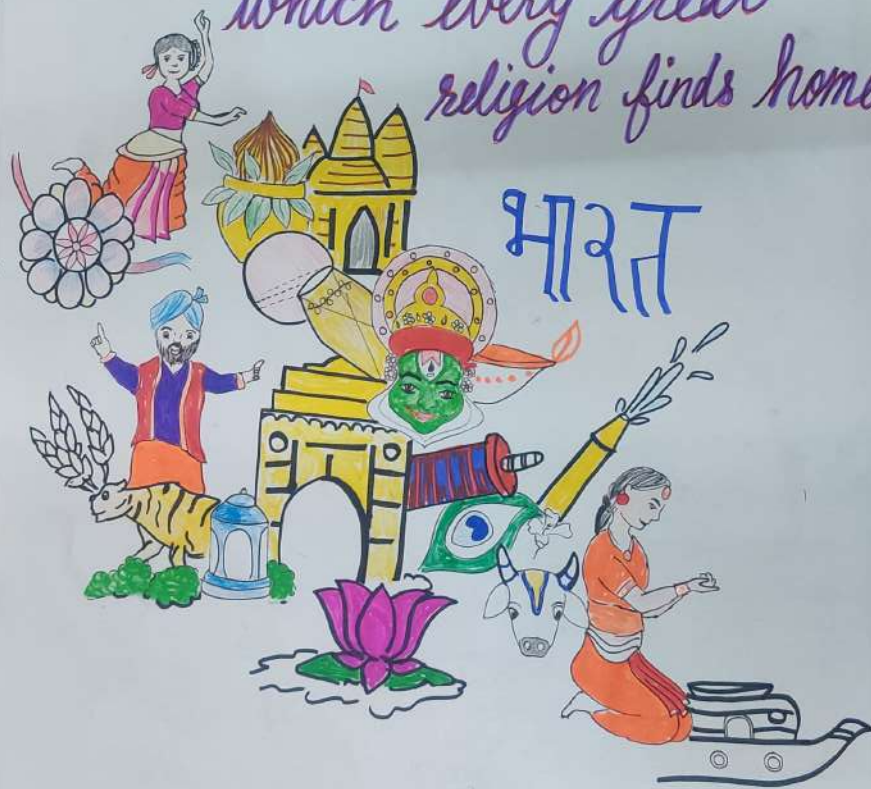 which every great
religion finds home
भारत